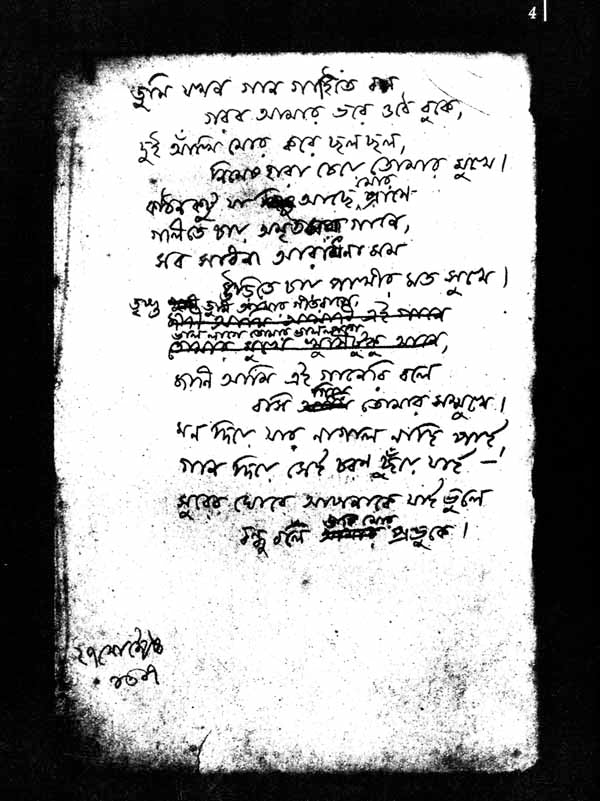 4
তুমি যখন গান গাহিতে বল,
গরব আমার ভরে ওঠে বুকে,
দুই আঁখি মোর করে ছল ছল,
নিমেষহারা চেয়ে তোমার মুখে।
কঠিন কটু যা আছে মোর প্রাণে
গলিতে চায় অমৃতময় গানে,
সব সাধনা আরাধনা মম
উড়িতে চায় পাখীর মত সুখে।
তৃপ্ত তুমি আমার গীতরাগে,
ভাল লাগে তোমার ভাল লাগে,
জানি আমি এই গানেরি বলে
বসি গিয়ে তোমার সম্মুখে।
মন দিয়ে যার নাগাল নাহি পাই,
গান দিয়ে সেই চরণ ছুঁয়ে যাই —
সুরের ঘোরে আপনাকে যাই ভুলে
বন্ধু বলে ডাকি মোর প্রভুকে।
২৭শে জ্যৈষ্ঠ
১৩১৭